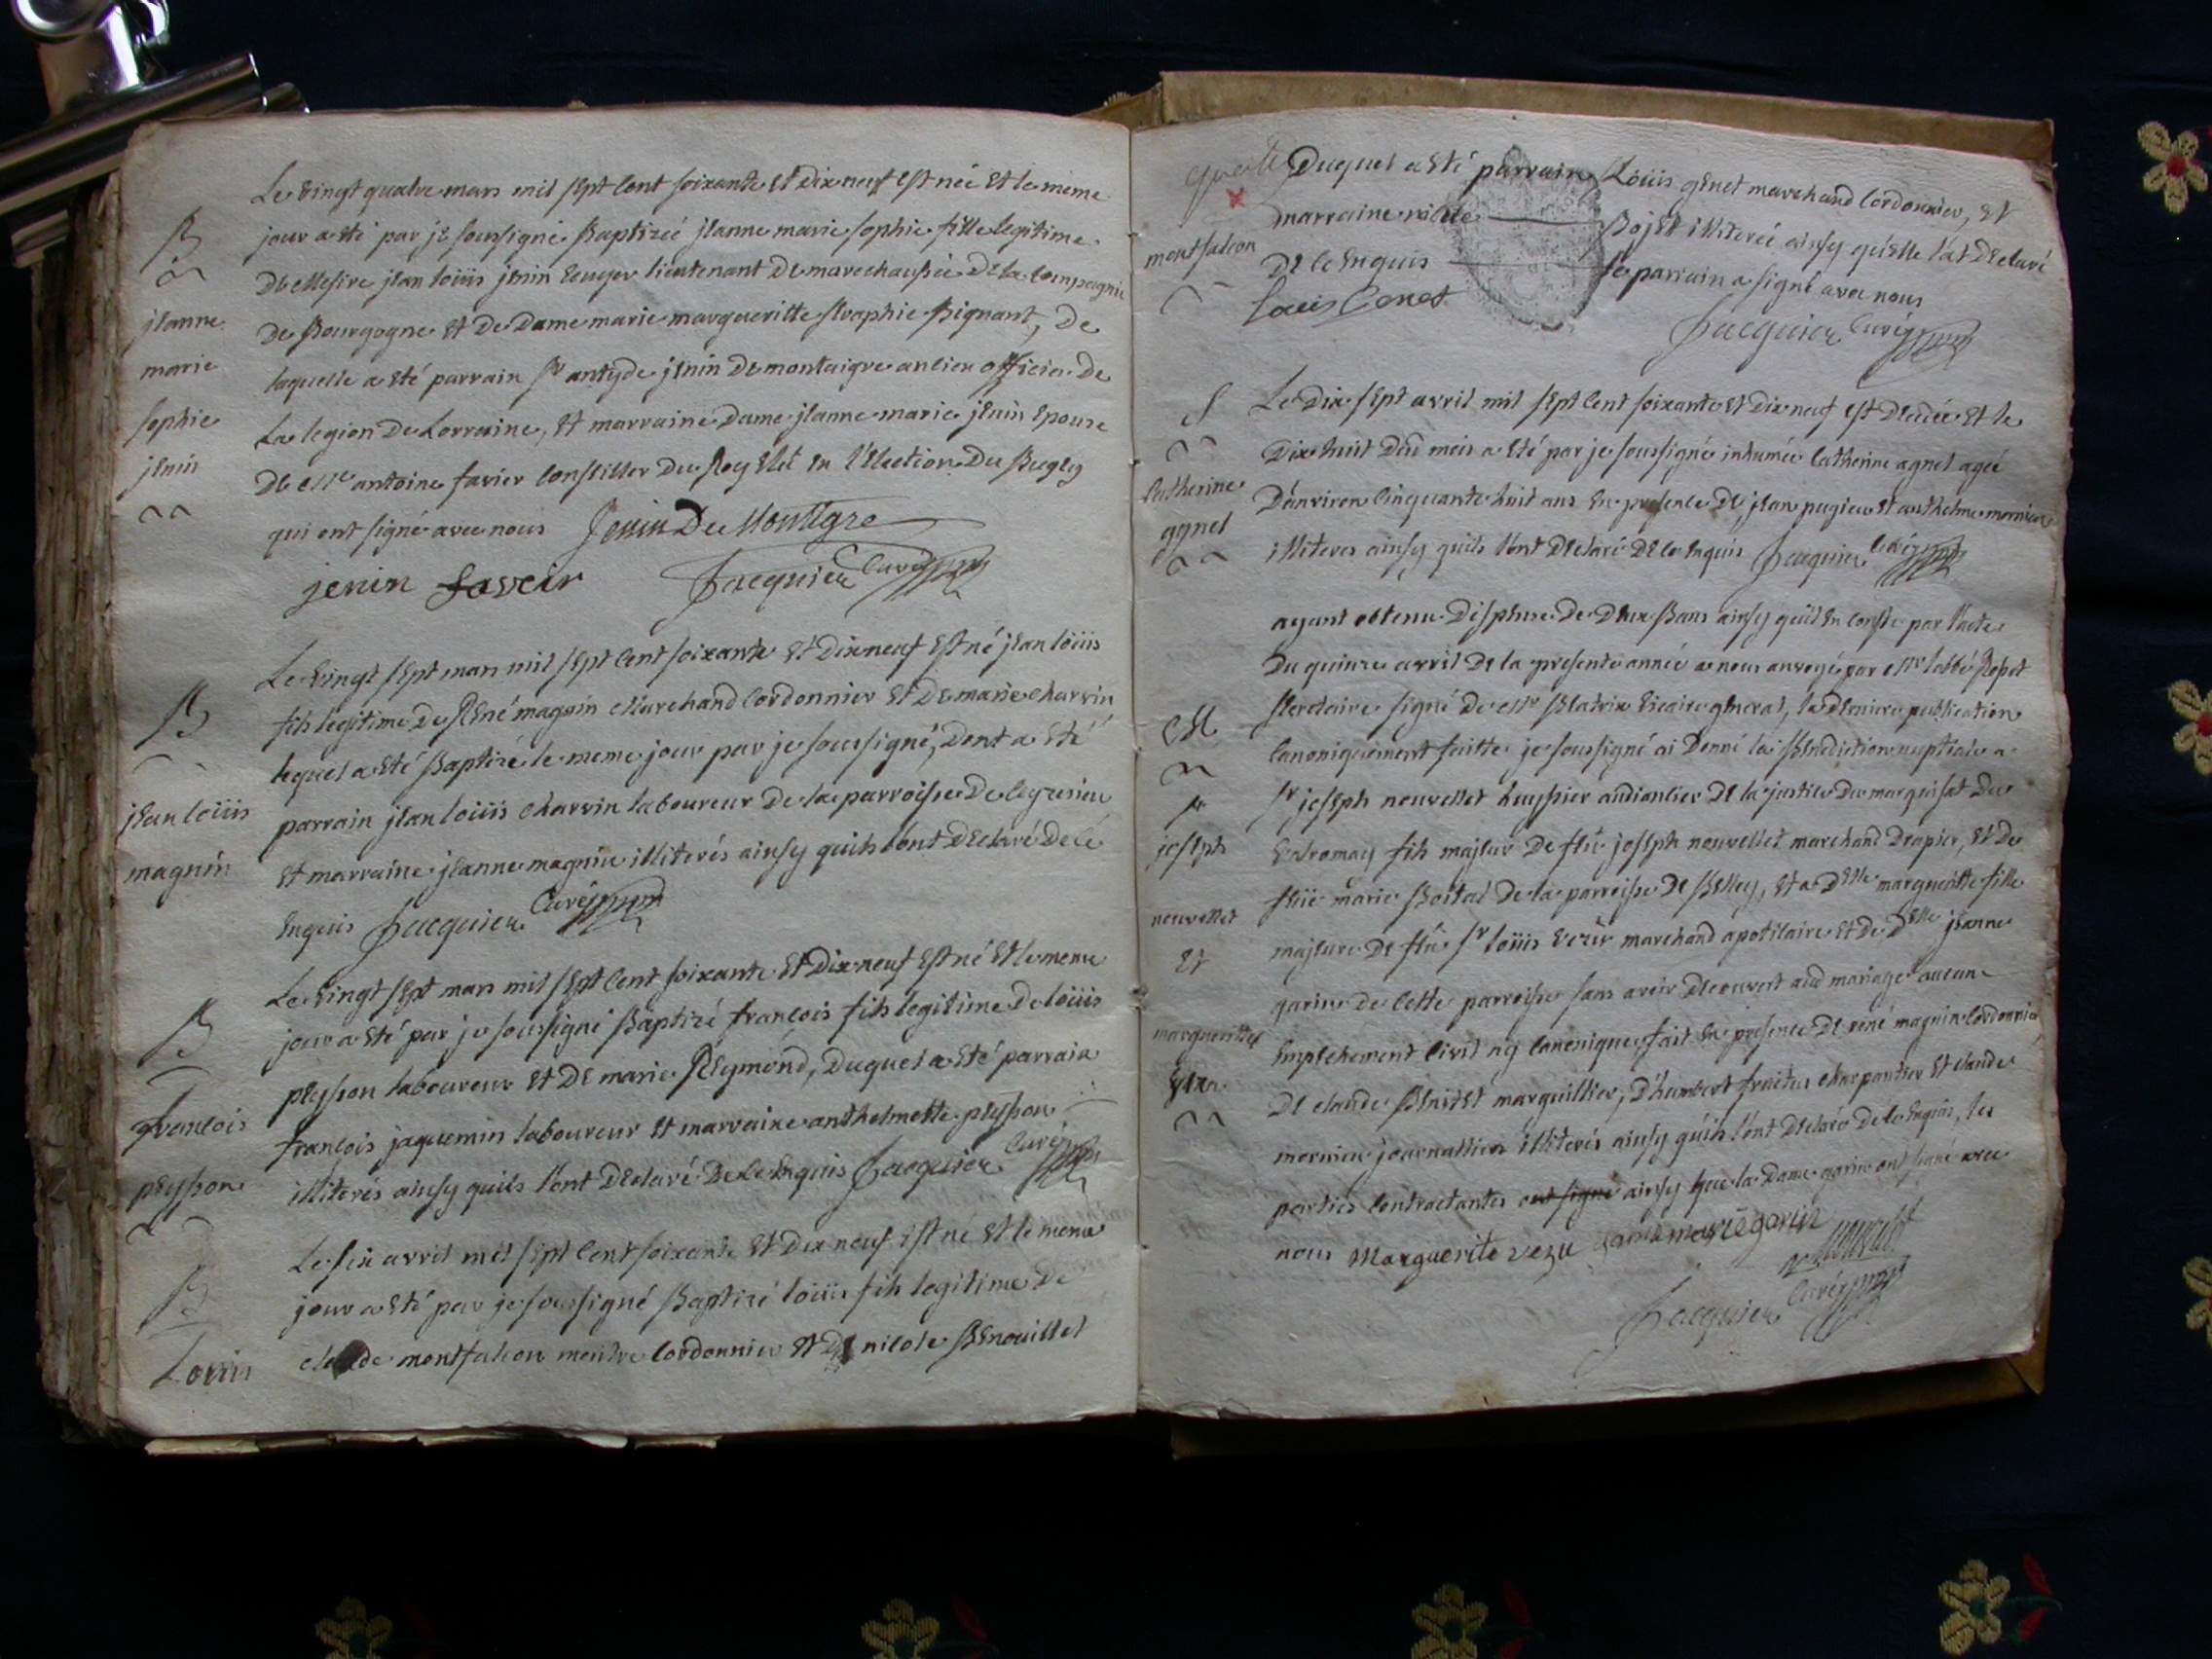 Le vingt quatre mars mil sept cent soixante et dix neuf est née et le meme
B
jour a eté par je soussigné Baptizée jeanne marie sophie fille legitime
de Messire jean loüis jenin Ecuyer lieutenant de marechaussée de la compagnie
jeanne
de Bourgogne et de Dame marie margueritte seraphie Bignant, de
marie
laquelle a eté parrain Sr antyde jenin de montaigre ancien officier de
sophie
La legion de Lorraine, et marraine Dame jeanne marie jenin Epouse
jenin
de Mre antoine favier conseiller du Roy Elet en l'Election du Bugey
qui ont signé avec nous Jenin De Montegre
jenin favier Jacquier Curé
Le vingt sept mars mil sept cent soixante et dix neuf est né jean loüis
B
fils legitime de René magnin Marchand cordonnier et de marie charvin
lequel a eté Baptizé le meme jour par je soussigné, dont a eté
jean loüis
parrain jean loüis charvin laboureur de la parroisse de ceyzerieu
magnin
et marraine jeanne magnin illiterés ainsy quils l'ont declaré de ce
Enquis Jacquier Curé
Le vingt sept mars mil sept cent soixante et dix neuf est né et le meme
B
jour a eté par je soussigné Baptizé francois fils legitime de loüis
peysson laboureur et de marie Reymond, duquel a eté parrain
francois
francois jaquemin laboureur et marraine anthelmette peysson
peysson
illiterés ainsy quils l'ont declaré de ce Enquis Jacquier Curé
Le six avril mil sept cent soixante et dix neuf est né et le meme
B
jour a eté par je soussigné Baptizé loüis fils legitime de
Loüis
claude montfalcon maitre cordonnier et de nicole Benouillet
duquel a eté parrain Loüis genet marchand cordonnier, et
marraine nicole Bojet illiterée ainsy qu'elle l'at declaré
montfalcon
de ce Enquis le parrain a signé avec nous
Louis Genet
Jacquier Curé
S
Le dix sept avril mil sept cent soixante et dix neuf est decedée et le
dix huit dud mois a eté par je soussigné inhumée catherine agnel agée
catherine
d'anviron cinquante huit ans en presence de jean pugieu et anthelme mornieu
agnel
illiteres ainsy quils l'ont declaré de ce enquis Jacquier Curé
ayant obtenu dispense de deux Bans ainsy qu'il en conste par l'acte
du quinze avril de la presente année a nous anvoyé par Mre l'abbé Ropet
M
secretaire signé de Mre Blatrix vicaire general, la derniere publication
canoniquement faitte je soussigné ai donné la Benediction nuptiale a
Sr
Sr joseph nouvellet huyssier audiancier de la justice du marquisat du
joseph
valromay fils majeur de feu joseph nouvellet marchand drapier, et de
nouvellet
feüe marie Boitat de la parroisse de Belley, et a Delle margueritte fille
et
majeure de feu Sr loüis vezu marchand apoticaire et de Delle jeanne
garin de cette parroisse sans avoir decouvert aud mariage aucun
margueritte
Empechement civil ny canonique, fait en presence de rené magnin cordonnier
vezu
de claude Benoist marguillier, d'humbert fraitier charpantier et claude
mornieu journallier illiterés ainsy qu'ils l'ont declaré de ce enquis, les
parties contractantes ont signé ainsy que la Dame garin ont signé avec
nous Marguerite vezu jeanne marie garin
nouvellet
Jacquier Curé